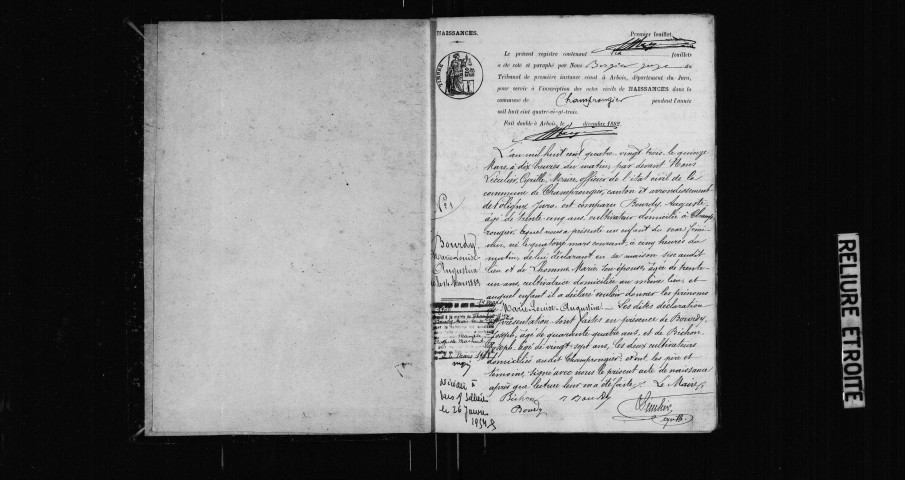 NAISSANCES.
Premier feuillet.
Le présent registre contenant feuillets
a été coté et paraphé par Nous juge du
Tribunal de première instance séant à Arbois, département du Jura,
pour servir à l'inscription des actes civils de NAISSANCES dans la
commune de Champrougier pendant l'année
mil huit cent quatre-vingt-trois.
Fait double à Arbois, le décembre 1882.
TIMBRE
L'an mil huit cent quatre-vingt trois, le quinze
Mars à dix heures du matin, par devant Nous
Léculier, Cyrille, Maire, officier de l'état civil de la
commune de Champrougier, canton et arrondissement
de Poligny, Jura, est comparu Bourdy, Auguste,
âgé de trente-cinq ans, cultivateur domicilié à Champ-
rougier, lequel nous a présenté un enfant du sexe fémi-
nin, né le quatorze mars courant, à cinq heures du
matin, de lui déclarant en sa maison sise audit
lieu et de Lhomme, Marie, son épouse, âgée de trente-
un ans, cultivatrice domiciliée au même lieu, et
auquel enfant il a déclaré vouloir donner les prénoms
de Marie-Louise-Augustine. Les dites déclaration
et présentation sont faites en présence de Bourdy,
Joseph, âgé de quarante quatre ans, et de Bichon,
Joseph, âgé de vingt sept ans, les deux cultivateurs
domiciliés audit Champrougier, et ont, les père et
témoins, signé avec nous le présent acte de naissance
après que lecture leur en a été faite. Le Maire,
Bichon Bourdy
Bourdy
Nº 1
Bourdy
Marie-Louise-
Augustine
Mars 1883
Décédée à
le 26 Janvier
1954
RELIURE ETROITE